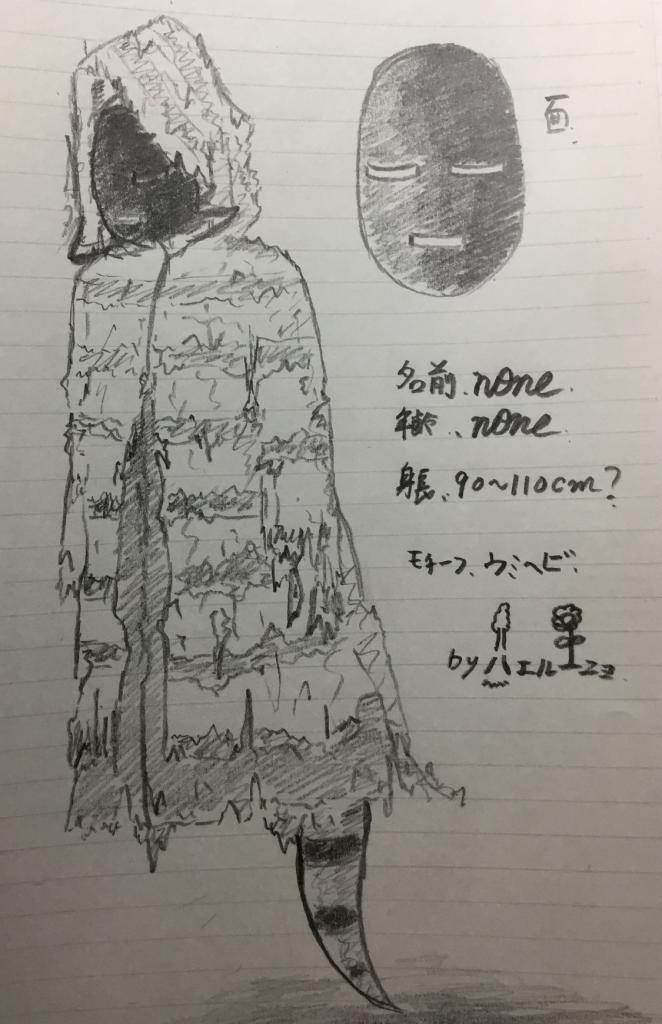 面
名前、none.
年齢、none.
身長、90〜110cm?
モチーフ、ウミヘビ.
by ハエルニヨ